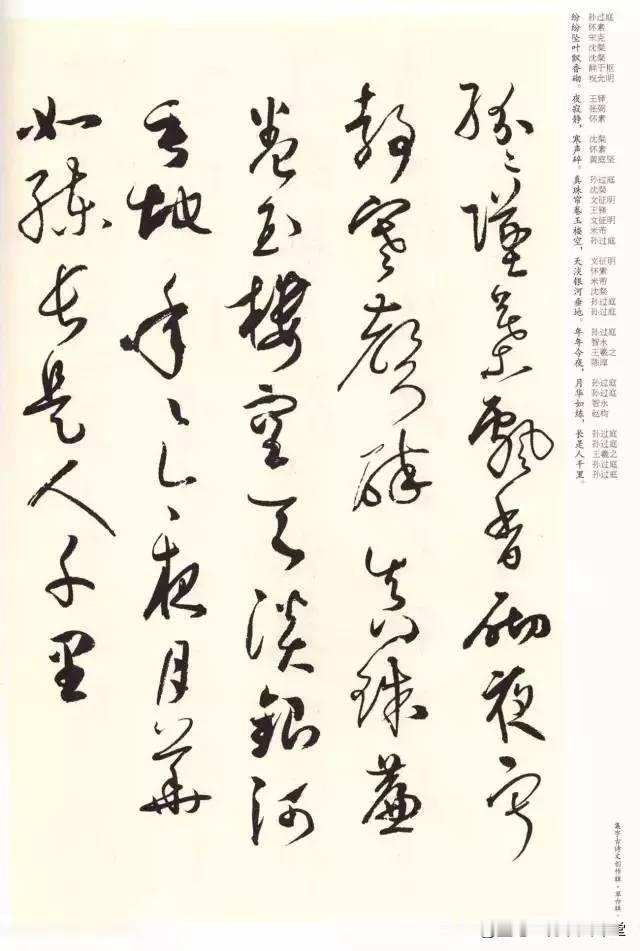 纷纷坠叶飘香砌。夜寂静,寒声碎。真珠帘卷玉楼空,天淡银河垂地。年年今夜,月华如练,长是人千里。
孙过庭 怀素 宋克 沈粲 沈粲 鲜于枢 祝允明
王铎 张弼 怀素
沈粲 怀素 黄庭坚
孙过庭 沈粲 文征明 王铎 文征明 米芾 孙过庭
文征明 怀素 米芾 沈粲 孙过庭 孙过庭
孙过庭 智永 王羲之 陈淳
孙过庭 孙过庭 智永 赵构
孙过庭 孙过庭 王羲之 孙过庭 孙过庭
紛紛墜葉飄香砌夜寂
靜寒聲碎真珠簾
卷玉樓空天淡銀河
垂地年年今夜月華
如練長是人千里
集字古诗文创作辑·草书辑·